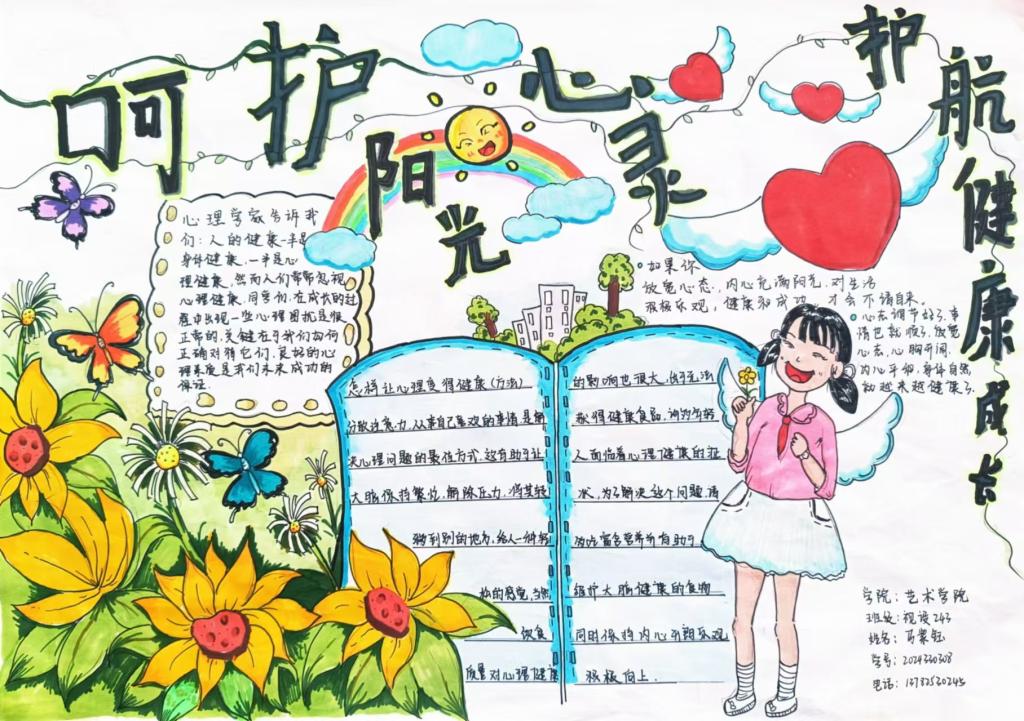 呵护
阳光
心灵
护航健康成长
心理学家告诉我
们：人的健康一半是
身体健康，一半是心
理健康，然而人们常常忽视
心理健康，同学们，在成长的过
程中出现一些心理困扰是很
正常的，关键在于我们如何
正确对待它们，良好的心
理素质是我们未来成功的
保证.
如果你
放宽心态，内心充满阳光，对生活
积极乐观，健康和成功 才会不请自来。
心态调节好了，事
情也就顺了，放宽
心态，心胸开阔
内心平和，身体自然
就越来越健康了
怎样让心理变得健康（方法）
分散注意力，从事自己喜欢的事情是解
决心理问题的最佳方式，这有助于让
大脑保持繁忙，解除压力，将其转
移到别的地方，给人一种轻
松的感觉，当然
饮食
质量对心理健康
的影响也很大，由于无法
获得健康食品，
人面临着心理健康的症
状，为了解决这个问题，请
吃富含营养并有助于
维护大脑健康的食物
同时保持内心开朗乐观
积极向上.
学院：艺术学院
班级：视设243
姓名：
学号：2024330308
电话：